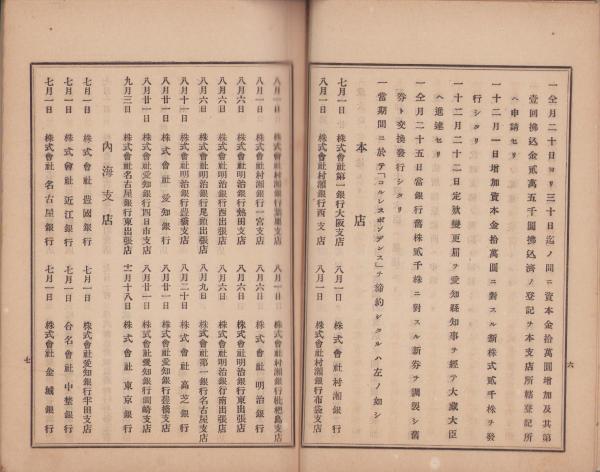 一仝月二十日ヨリ三十日迄ノ間ニ資本金拾萬圓增加及其第
壹回拂込金貳萬五千圓拂込濟ノ登記ヲ本支店所轄登記所
ヘ申請セリ
一十二月一日增加資本金拾萬圓ニ對スル新株式貳千株ヲ發
行シタリ
一十二月二十二日定欵變更届ヲ愛知縣知事ヲ經テ大藏大臣
ヘ進達セリ
一仝月二十五日當銀行舊株貳千株ニ對スル新券ヲ調製シ舊
券ト交換發行シタリ
一當期間ニ於テ「コルレスポンデンス」ヲ締約シタルハ左ノ如シ
本店
七月一日 株式會社第一銀行大阪支店 八月一日 株式會社村瀨銀行
八月一日 株式會社村瀨銀行西支店 八月一日 株式會社村瀨銀行布袋支店
六
八月一日 株式會社村瀨銀行 八月一日 株式會社村瀨銀行枇杷島支店
八月一日 株式會社村瀨銀行一宮支店 八月六日 株式會社明治銀行
八月六日 株式會社明治銀行熱田支店 八月六日 株式會社明治銀行東出張店
八月六日 株式會社明治銀行西出張店 八月六日 株式會社明治銀行南出張店
八月六日 株式會社明治銀行尾頭出張店 八月九日 株式會社第一銀行名古屋支店
八月十一日 株式會社明治銀行豊橋支店 八月二十日 株式會社高芝銀行
八月廿一日 株式會社愛知銀行 八月廿一日 株式會社愛知銀行豊橋支店
八月廿一日 株式會社愛知銀行四日市支店 八月廿一日 株式會社愛知銀行岡崎支店
九月三日 株式會社名古屋銀行東出張店 十二月十八日 株式會社東京銀行
內海支店
七月一日 株式會社豊國銀行 七月一日 株式會社愛知銀行半田支店
七月一日 株式會社近江銀行 七月一日 合名會社中埜銀行
七月一日 株式會社名古屋銀行 七月一日 株式會社金城銀行
七